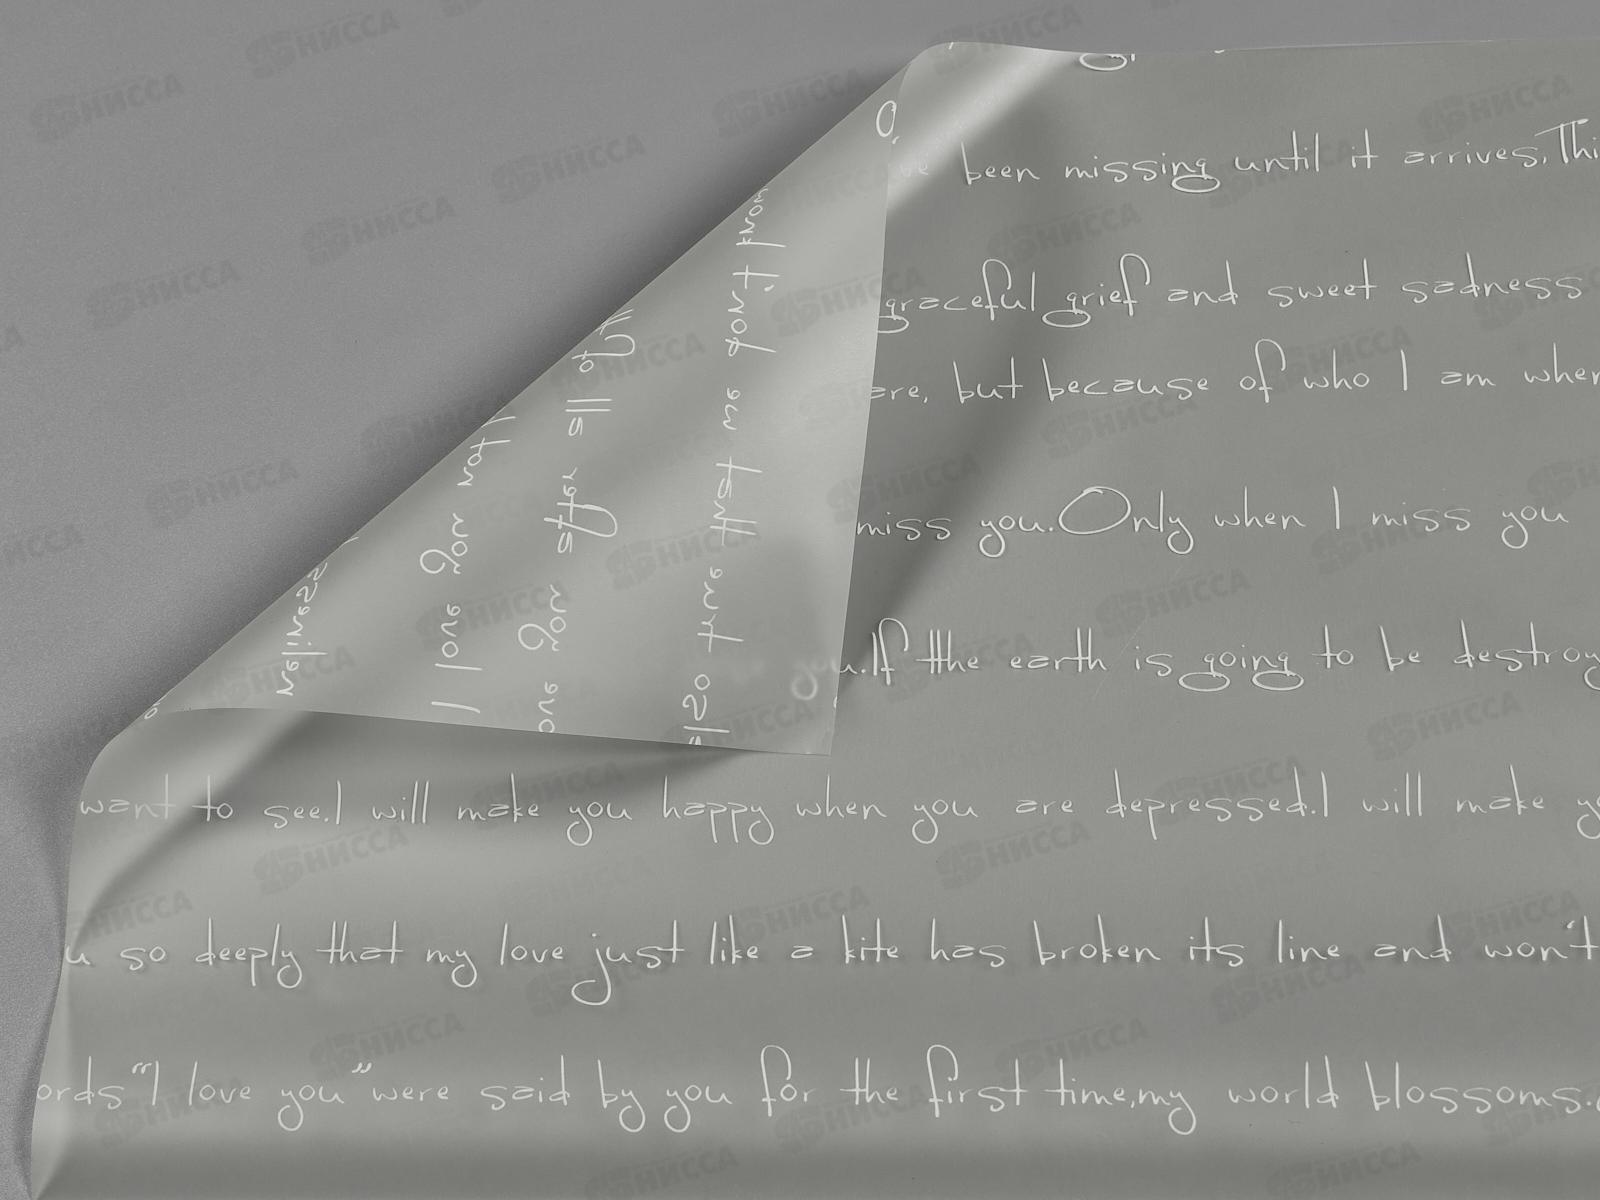 been missing until it arrives, Thi
graceful grief and sweet sadness
are, but because of who I am when
miss you. Only when I miss you
you. If the earth is going to be destroy
want to see. I will make you happy when you are depressed. I will make yo
u so deeply that my love just like a kite has broken its line and won't
ords "I love you" were said by you for the first time, my world blossoms.
neliness
I love you not
ove you after all of
also true that we don't know
НИССА